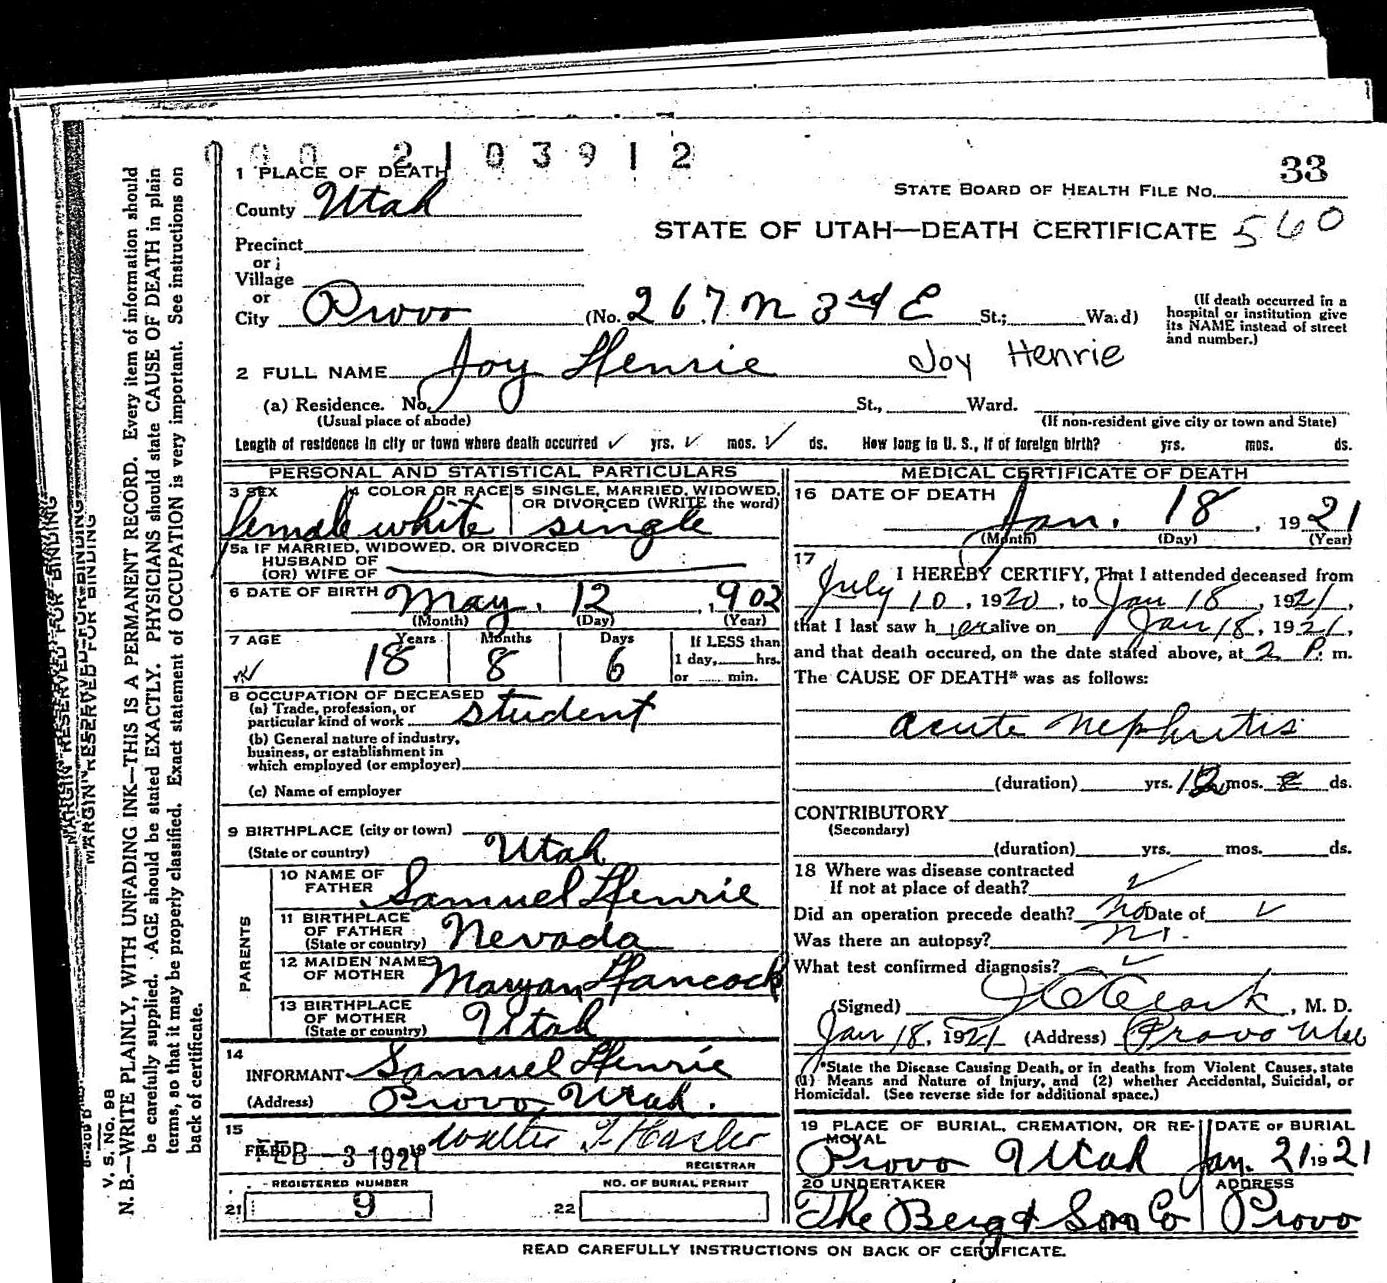 0002103912
1 PLACE OF DEATH
33
STATE BOARD OF HEALTH FILE No.
County Utah
STATE OF UTAH—DEATH CERTIFICATE 560
Precinct
or
Village
or
City Provo (No. 267 N 3rd E St.; Ward)
(If death occurred in a
hospital or institution give
its NAME instead of street
and number.)
2 FULL NAME Joy Henrie Joy Henrie
(a) Residence. No. St., Ward.
(Usual place of abode) (If non-resident give city or town and State)
Length of residence in city or town where death occurred ✓ yrs. ✓ mos. ✓ ds. How long in U. S., if of foreign birth? yrs. mos. ds.
PERSONAL AND STATISTICAL PARTICULARS
3 SEX 4 COLOR OR RACE 5 SINGLE, MARRIED, WIDOWED,
OR DIVORCED (WRITE the word)
female white single
5a IF MARRIED, WIDOWED, OR DIVORCED
HUSBAND OF
(OR) WIFE OF
6 DATE OF BIRTH May. 12, 1902
(Month) (Day) (Year)
7 AGE Years Months Days If LESS than
18 8 6 1 day, hrs.
or min.
8 OCCUPATION OF DECEASED
(a) Trade, profession, or
particular kind of work student
(b) General nature of industry,
business, or establishment in
which employed (or employer)
(c) Name of employer
9 BIRTHPLACE (city or town)
(State or country) Utah
PARENTS
10 NAME OF
FATHER Samuel Henrie
11 BIRTHPLACE
OF FATHER
(State or country) Nevada
12 MAIDEN NAME
OF MOTHER Maryan Hancock
13 BIRTHPLACE
OF MOTHER
(State or country) Utah
14
INFORMANT Samuel Henrie
(Address) Provo, Utah.
15
FILED FEB -3 1921 Walter T Hasler
REGISTRAR
REGISTERED NUMBER NO. OF BURIAL PERMIT
21 9 22
MEDICAL CERTIFICATE OF DEATH
16 DATE OF DEATH
Jan. 18, 1921
(Month) (Day) (Year)
17
I HEREBY CERTIFY, That I attended deceased from
July 10, 1920, to Jan 18, 1921,
that I last saw her alive on Jan 18, 1921,
and that death occured, on the date stated above, at 2 P. m.
The CAUSE OF DEATH* was as follows:
acute nephritis
(duration) yrs. mos. ds.
CONTRIBUTORY
(Secondary)
(duration) yrs. mos. ds.
18 Where was disease contracted
If not at place of death? ✓
Did an operation precede death? no Date of ✓
Was there an autopsy? no
What test confirmed diagnosis? ✓
(Signed) Clark, M. D.
Jan 18, 1921 (Address) Provo Utah
*State the Disease Causing Death, or in deaths from Violent Causes, state
(1) Means and Nature of Injury, and (2) whether Accidental, Suicidal, or
Homicidal. (See reverse side for additional space.)
19 PLACE OF BURIAL, CREMATION, OR RE- DATE OF BURIAL
MOVAL
Provo Utah Jan. 21, 1921
20 UNDERTAKER ADDRESS
The Berg & Son Co Provo
READ CAREFULLY INSTRUCTIONS ON BACK OF CERTIFICATE.
MARGIN RESERVED FOR BINDING
MARGIN RESERVED FOR BINDING
V. S. No. 98
N. B.—WRITE PLAINLY, WITH UNFADING INK—THIS IS A PERMANENT RECORD. Every item of information should
be carefully supplied. AGE should be stated EXACTLY. PHYSICIANS should state CAUSE OF DEATH in plain
terms, so that it may be properly classified. Exact statement of OCCUPATION is very important. See instructions on
back of certificate.